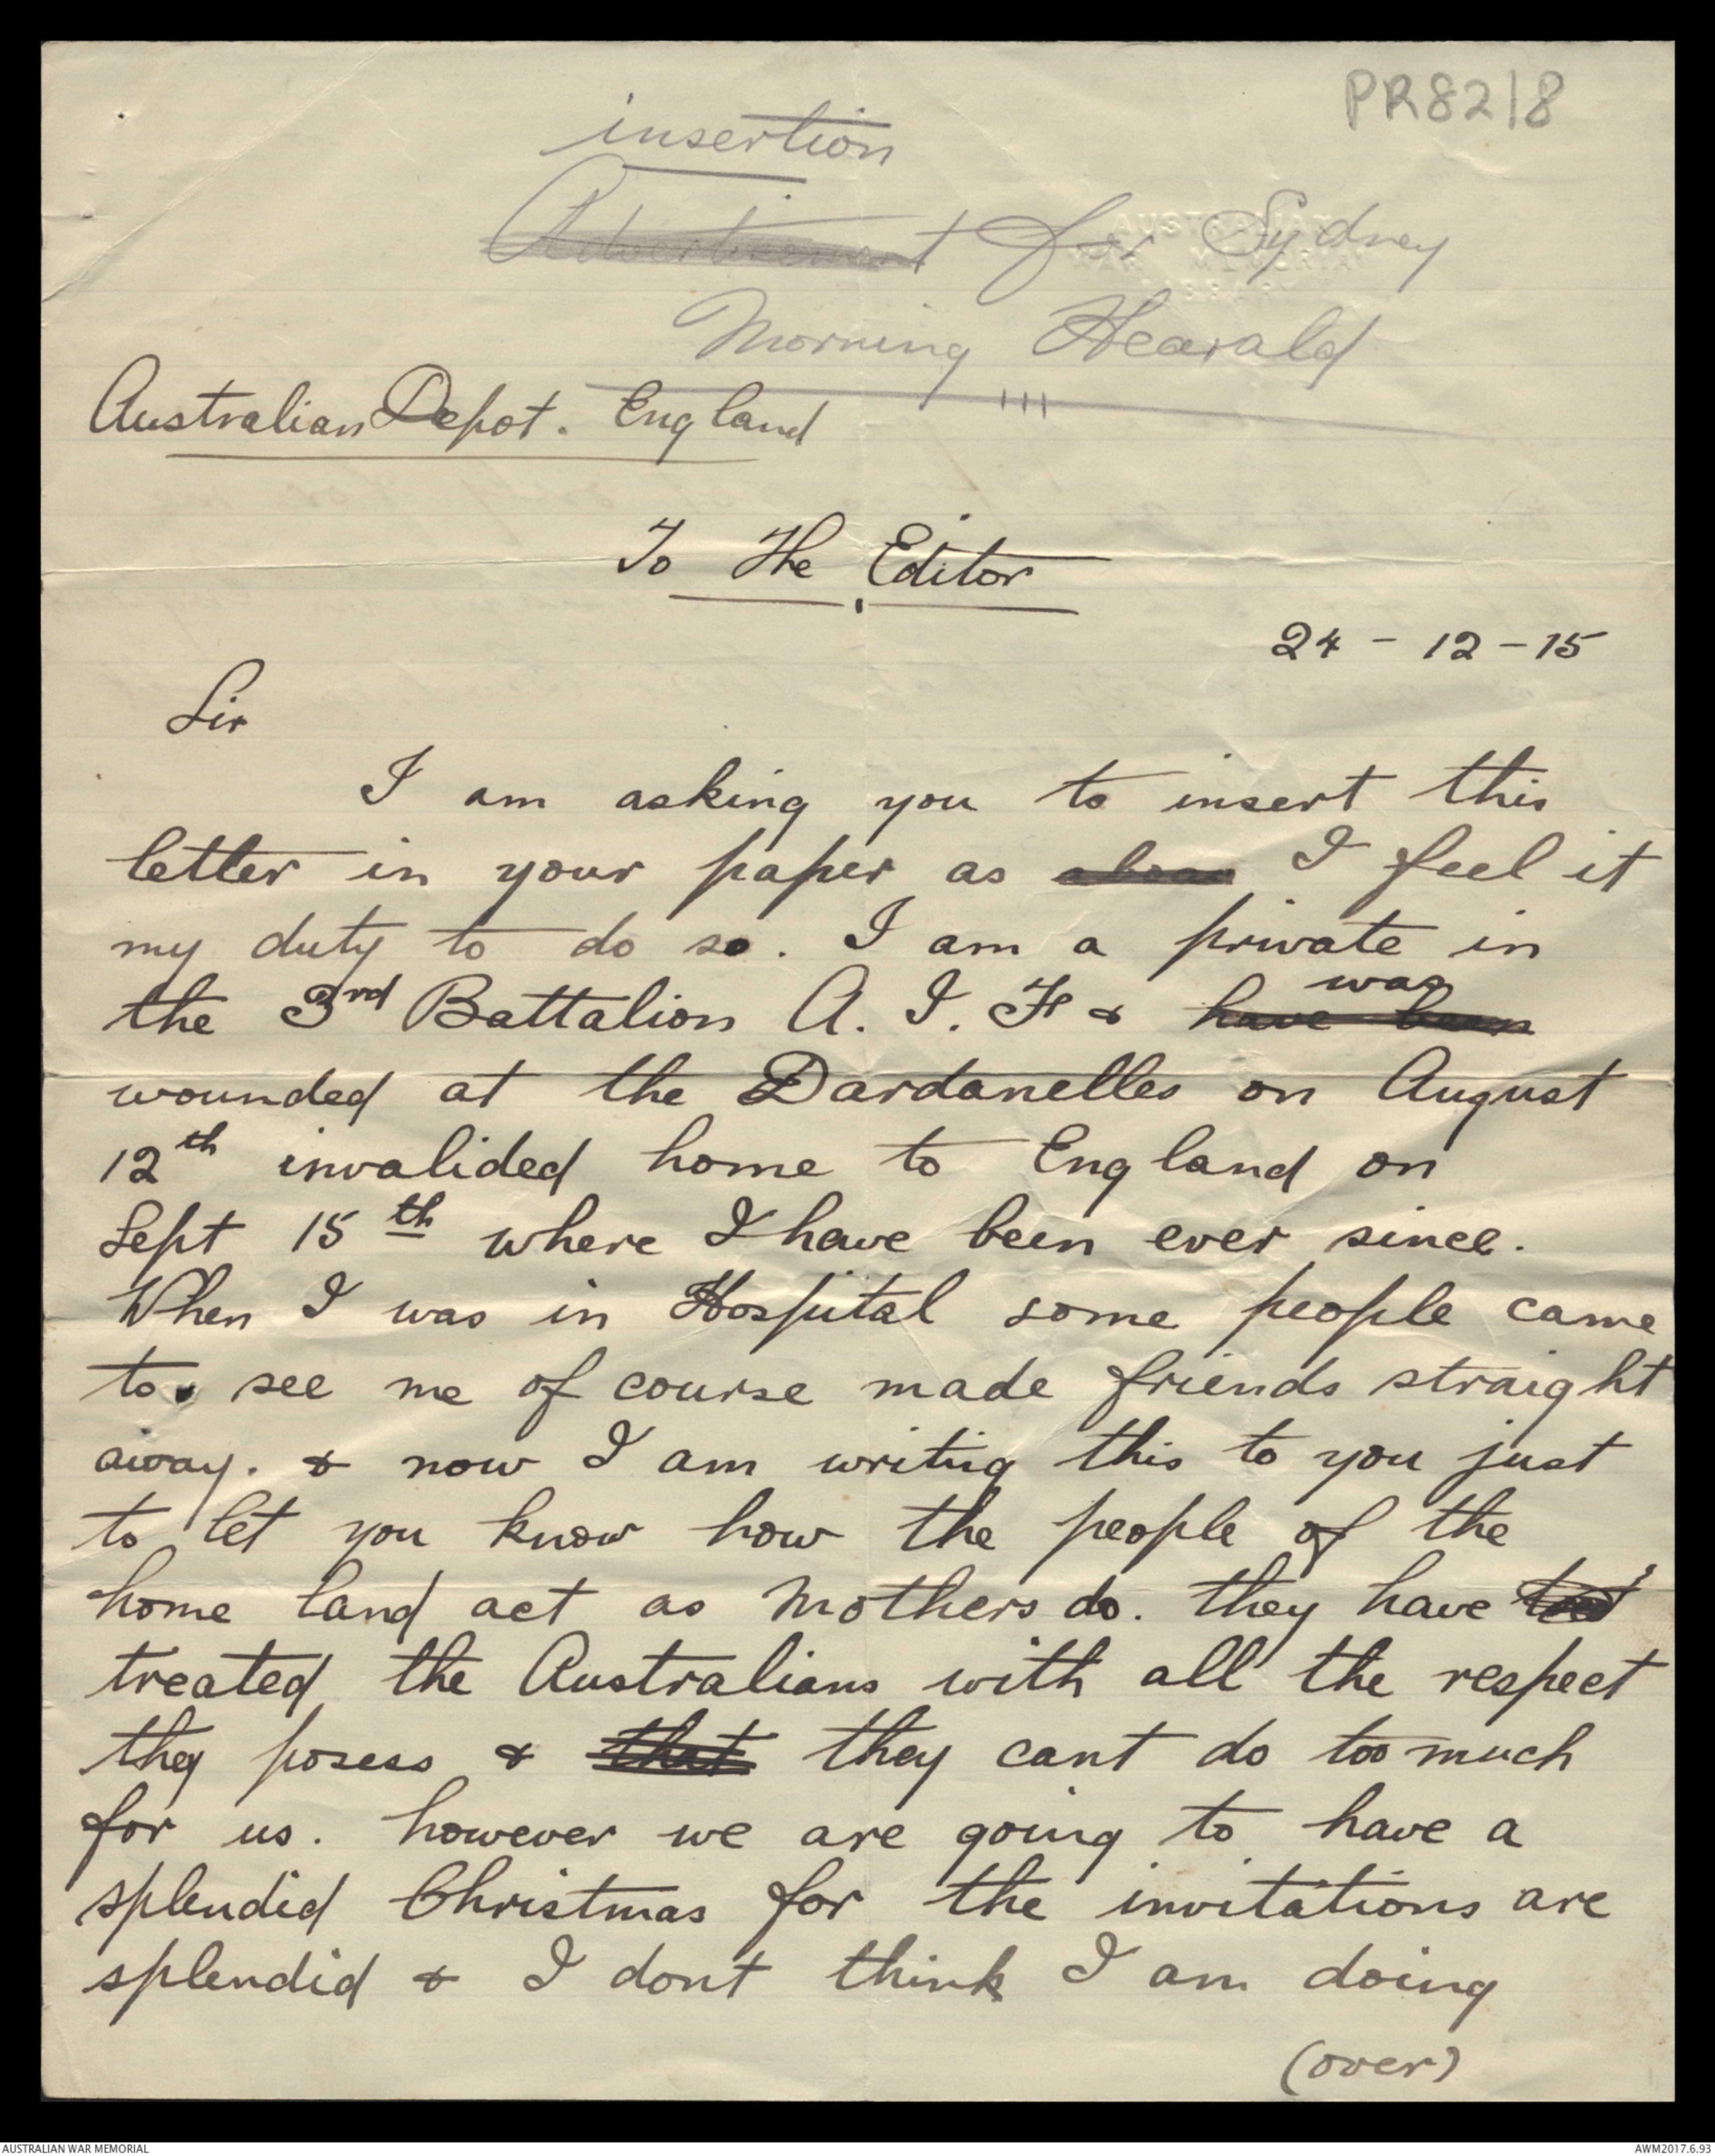 PR82/8
insertion
Advertisement for Sydney
Morning Hearald
AUSTRALIAN
WAR MEMORIAL
LIBRARY
Australian Depot. England
To The Editor
24-12-15
Sir
I am asking you to insert this
letter in your paper as I feel it
my duty to do so. I am a private in
the 3rd Battalion A. I. F & have been was
wounded at the Dardanelles on August
12th invalided home to England on
Sept 15th where I have been ever since.
When I was in Hospital some people came
to see me of course made friends straight
away. & now I am writing this to you just
to let you know how the people of the
home land act as Mothers do. they have
treated the Australians with all the respect
they posess & that they cant do too much
for us. however we are going to have a
splendid Christmas for the invitations are
splendid & I dont think I am doing
(over)
AUSTRALIAN WAR MEMORIAL
AWM2017.6.93